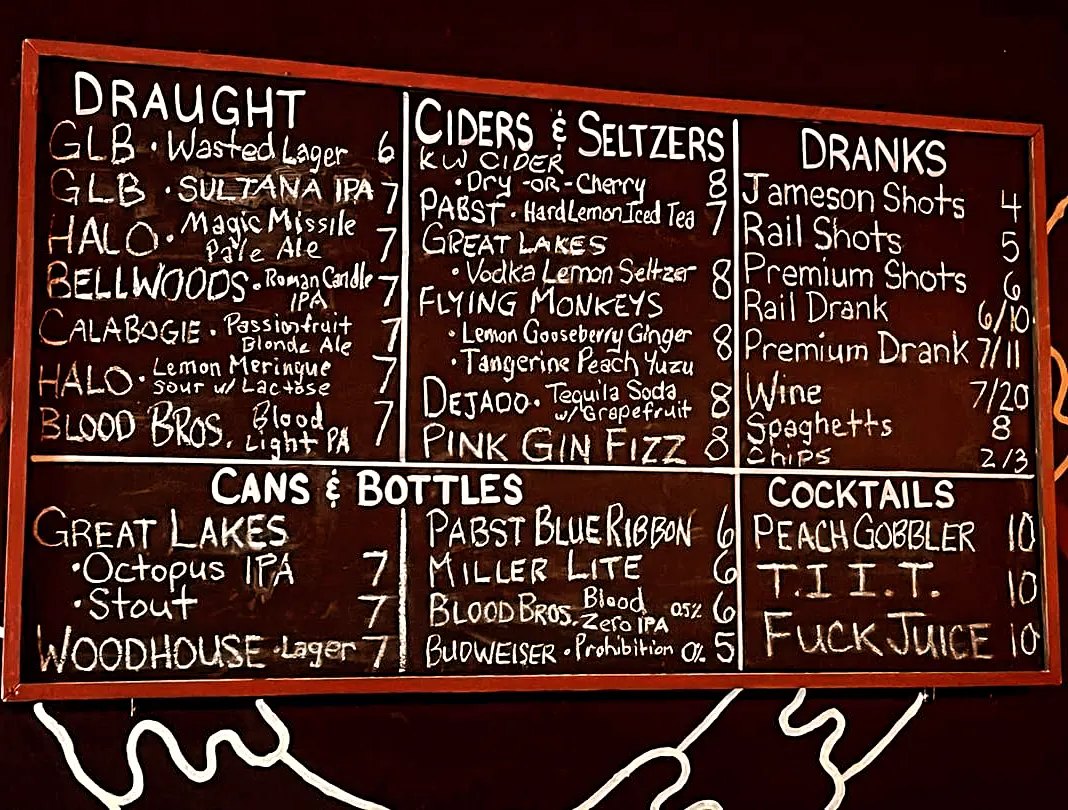 DRAUGHT
GLB · Wasted Lager 6
GLB · SULTANA IPA 7
HALO · Magic Missile
Pale Ale 7
BELLWOODS · Roman Candle
IPA 7
CALABOGIE · Passionfruit
Blonde Ale 7
HALO · Lemon Meringue
Sour w/ Lactose 7
BLOOD BROS. Blood
Light PA 7
CIDERS & SELTZERS
KW CIDER
· Dry -OR- Cherry 8
PABST · Hard Lemon Iced Tea 7
GREAT LAKES
· Vodka Lemon Seltzer 8
FLYING MONKEYS
· Lemon Gooseberry Ginger 8
· Tangerine Peach Yuzu
DEJADO · Tequila Soda
w/ Grapefruit 8
PINK GIN FIZZ 8
DRANKS
Jameson Shots 4
Rail Shots 5
Premium Shots 6
Rail Drank 6/10
Premium Drank 7/11
Wine 7/20
Spaghetts 8
Chips 2/3
CANS & BOTTLES
GREAT LAKES
· Octopus IPA 7
· Stout 7
WOODHOUSE · Lager 7
PABST BLUE RIBBON 6
MILLER LITE 6
BLOOD BROS. Blood
Zero IPA 0.5% 6
BUDWEISER · Prohibition 0% 5
COCKTAILS
PEACH GOBBLER 10
T.I I.T. 10
FUCK JUICE 10